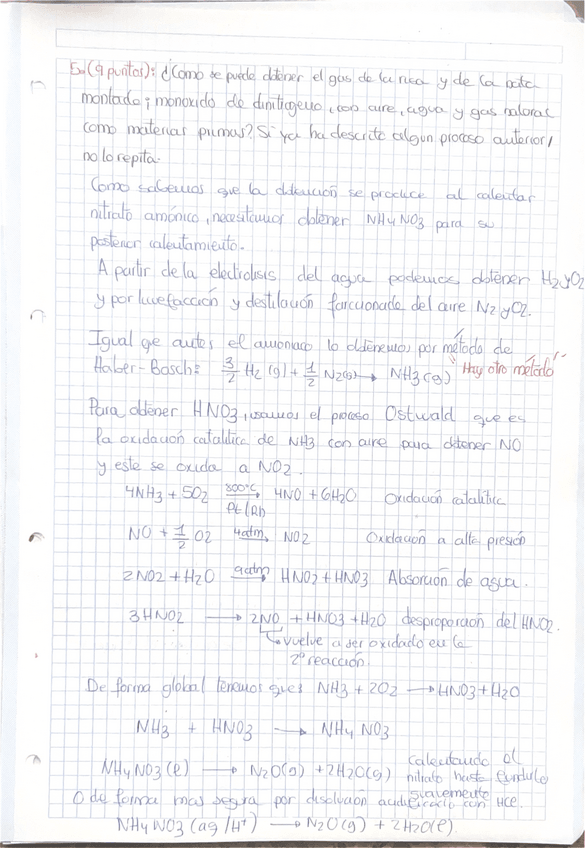 5.- (9 puntos): ¿Como se puede obtener el gas de la risa y de la nata
montada; monoxido de dinitrogeno, con aire, agua y gas natural
como materias primas? Si ya ha descrito algun proceso anterior,
no lo repita.
Como sabemos que la obtención se produce al calentar
nitrato amónico, necesitamos obtener NH4NO3 para su
posterior calentamiento.
A partir de la electrolisis del agua podemos obtener H2 y O2
y por licuefacción y destilación fraccionada del aire N2 y O2.
Igual qe antes el amoniaco lo obtenemos por método de
Haber-Bosch: 3/2 H2(g) + 1/2 N2(g) → NH3(g) "Hay otro método"
Para obtener HNO3, usamos el proceso Ostwald que es
la oxidación catalítica de NH3 con aire para obtener NO
y este se oxida a NO2.
4NH3 + 5O2 →(800ºC, Pt/Rh) 4NO + 6H2O Oxidación catalítica
NO + 1/2 O2 →(4atm) NO2 Oxidación a alta presión
2NO2 + H2O →(9atm) HNO2 + HNO3 Absorción de agua.
3HNO2 → 2NO + HNO3 + H2O desproporción del HNO2.
↳ vuelve a ser oxidado en la
2ª reacción.
De forma global tenemos que: NH3 + 2O2 → HNO3 + H2O
NH3 + HNO3 → NH4NO3
NH4NO3(l) → N2O(g) + 2H2O(g) calentando el
nitrato hasta fundirlo
suavemente
O de forma mas segura por disolución acidificada con HCl.
NH4NO3(aq/H+) → N2O(g) + 2H2O(l)